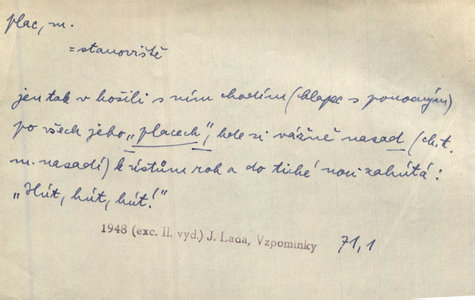 plac, m.
= stanoviště
jen tak v košili s ním chodím (chlapec s ponocným)
po všech jeho „placech", kde si vážně nasad (cit.
m. nasadí) k ústům roh a do tiché noci zahútá:
„Hút, hút, hút!"
1948 (exc. II. vyd.) J. Lada, Vzpomínky 71,1